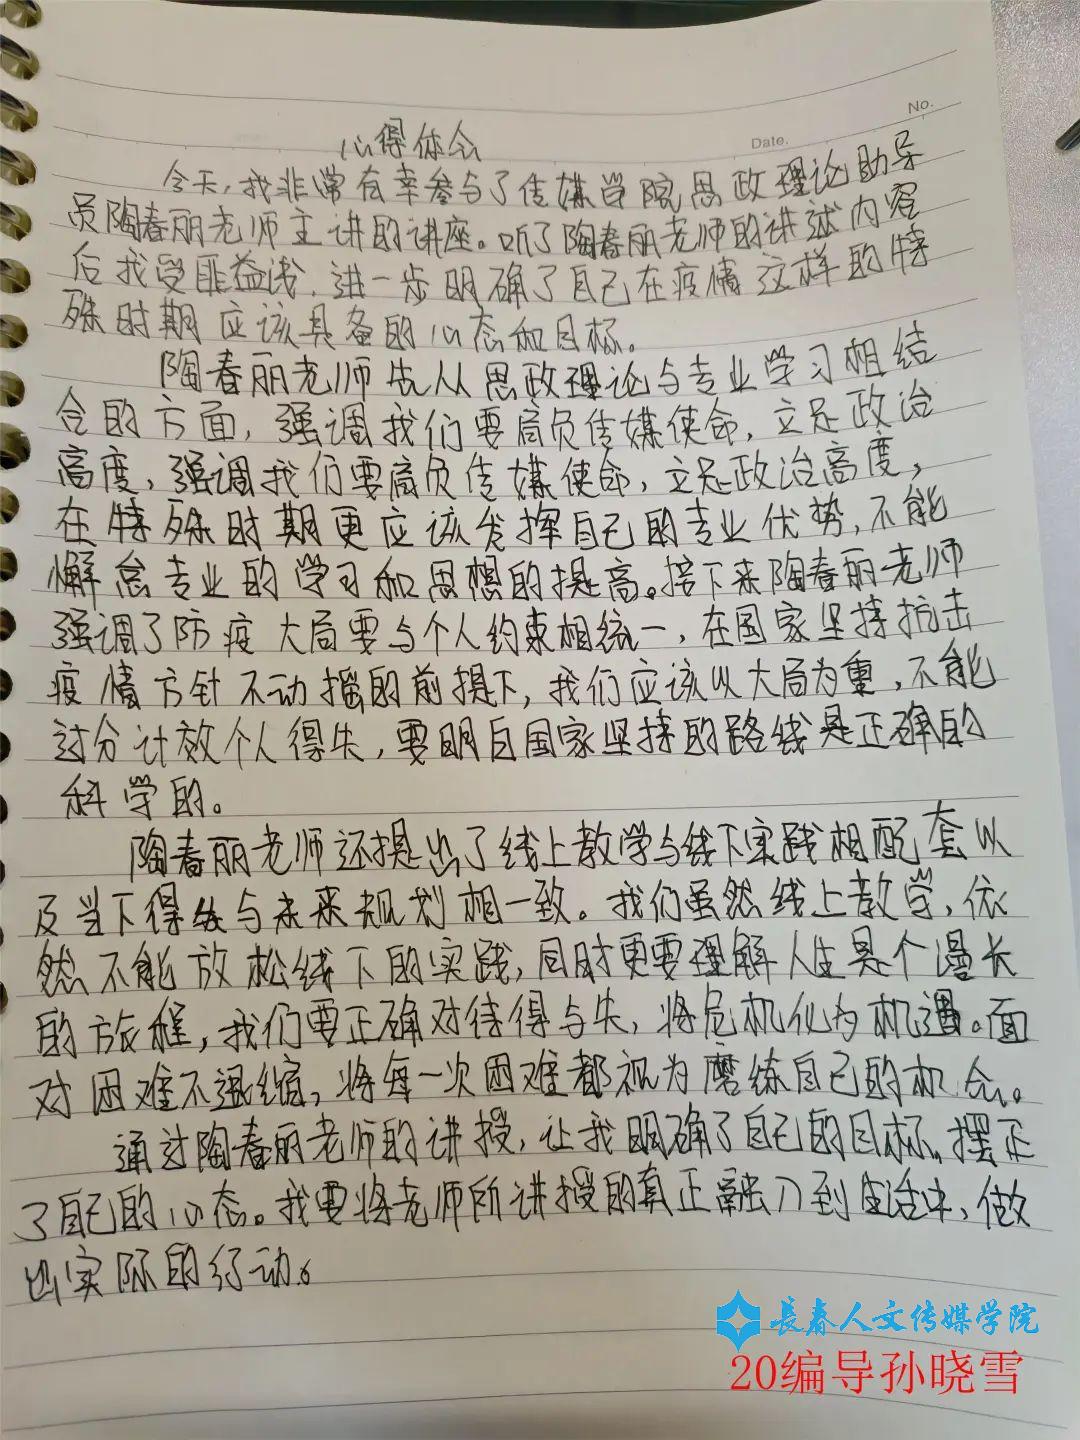 No.
Date.
心得体会
今天,我非常有幸参与了传媒学院思政理论助导
员陶春丽老师主讲的讲座。听了陶春丽老师的讲述内容
后我受匪益浅,进一步明确了自己在疫情这样的特
殊时期应该具备的心态和目标。
陶春丽老师先从思政理论与专业学习相结
合的方面,强调我们要肩负传媒使命,立足政治
高度,强调我们要肩负传媒使命,立足政治高度,
在特殊时期更应该发挥自己的专业优势,不能
懈怠专业的学习和思想的提高。接下来陶春丽老师
强调了防疫大局要与个人约束相统一,在国家坚持抗击
疫情方针不动摇的前提下,我们应该以大局为重,不能
过分计较个人得失,要明白国家坚持的路线是正确的
科学的。
陶春丽老师还提出了线上教学与线下实践相配套以
及当下得失与未来规划相一致。我们虽然线上教学,依
然不能放松线下的实践,同时更要理解人生是个漫长
的旅程,我们要正确对待得与失,将危机化为机遇。面
对困难不退缩,将每一次困难都视为磨练自己的机会。
通过陶春丽老师的讲授,让我明确了自己的目标,摆正
了自己的心态。我要将老师所讲授的真正融入到生活中,做
出实际的行动。
長春人文传媒学院
20编导孙晓雪